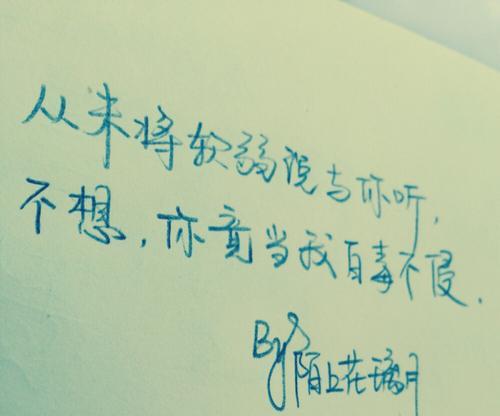 从未将软弱说与你听，
不想，你竟当我百毒不侵．
By 陌上花璃月